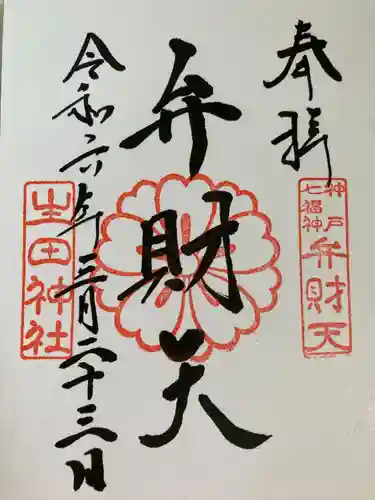 奉拝
七福神
神戸
弁財天
弁財天
令和六年三月二十三日
生田神社